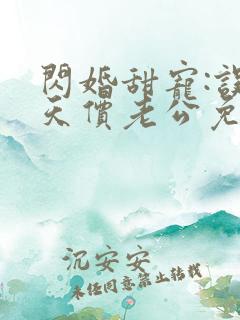 閃婚甜寵:
天價老公免
沉安安
未任同意禁止轉載